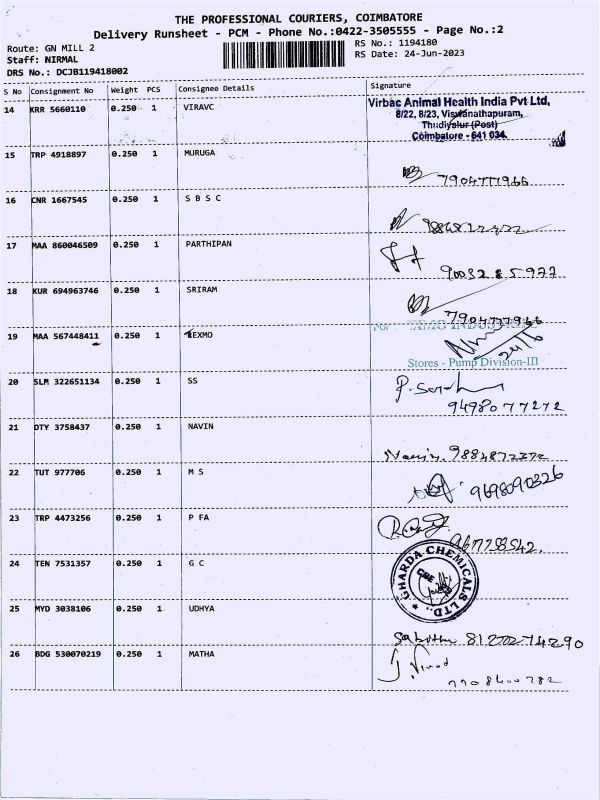 THE PROFESSIONAL COURIERS, COIMBATORE
Delivery Runsheet - PCM - Phone No.:0422-3505555 - Page No.:2
Route: GN MILL 2
Staff: NIRMAL
DRS No.: DCJB119418002
RS No.: 1194180
RS Date: 24-Jun-2023
S No Consignment No Weight PCS Consignee Details Signature
14 KRR 5660110 0.250 1 VIRAVC
Virbac Animal Health India Pvt Ltd,
8/22, 8/23, Viswanathapuram,
Thudiyalur (Post)
Coimbatore - 641 034.
15 TRP 4918897 0.250 1 MURUGA
7904777966
16 CNR 1667545 0.250 1 S B S C
17 MAA 860046509 0.250 1 PARTHIPAN
90032 85977
18 KUR 694963746 0.250 1 SRIRAM
7904777966
19 MAA 567448411 0.250 1 TEXMO
For
24/6
Stores - Pump Division-III
20 SLM 322651134 0.250 1 SS
9498077272
21 OTY 3758437 0.250 1 NAVIN
Navin. 9884872272
22 TUT 977706 0.250 1 M S
9698090326
23 TRP 4473256 0.250 1 P FA
24 TEN 7531357 0.250 1 G C
GHARDA CHEMICALS LTD.,
CBE
25 MYD 3038106 0.250 1 UDHYA
26 BDG 530070219 0.250 1 MATHA
J. Vinod